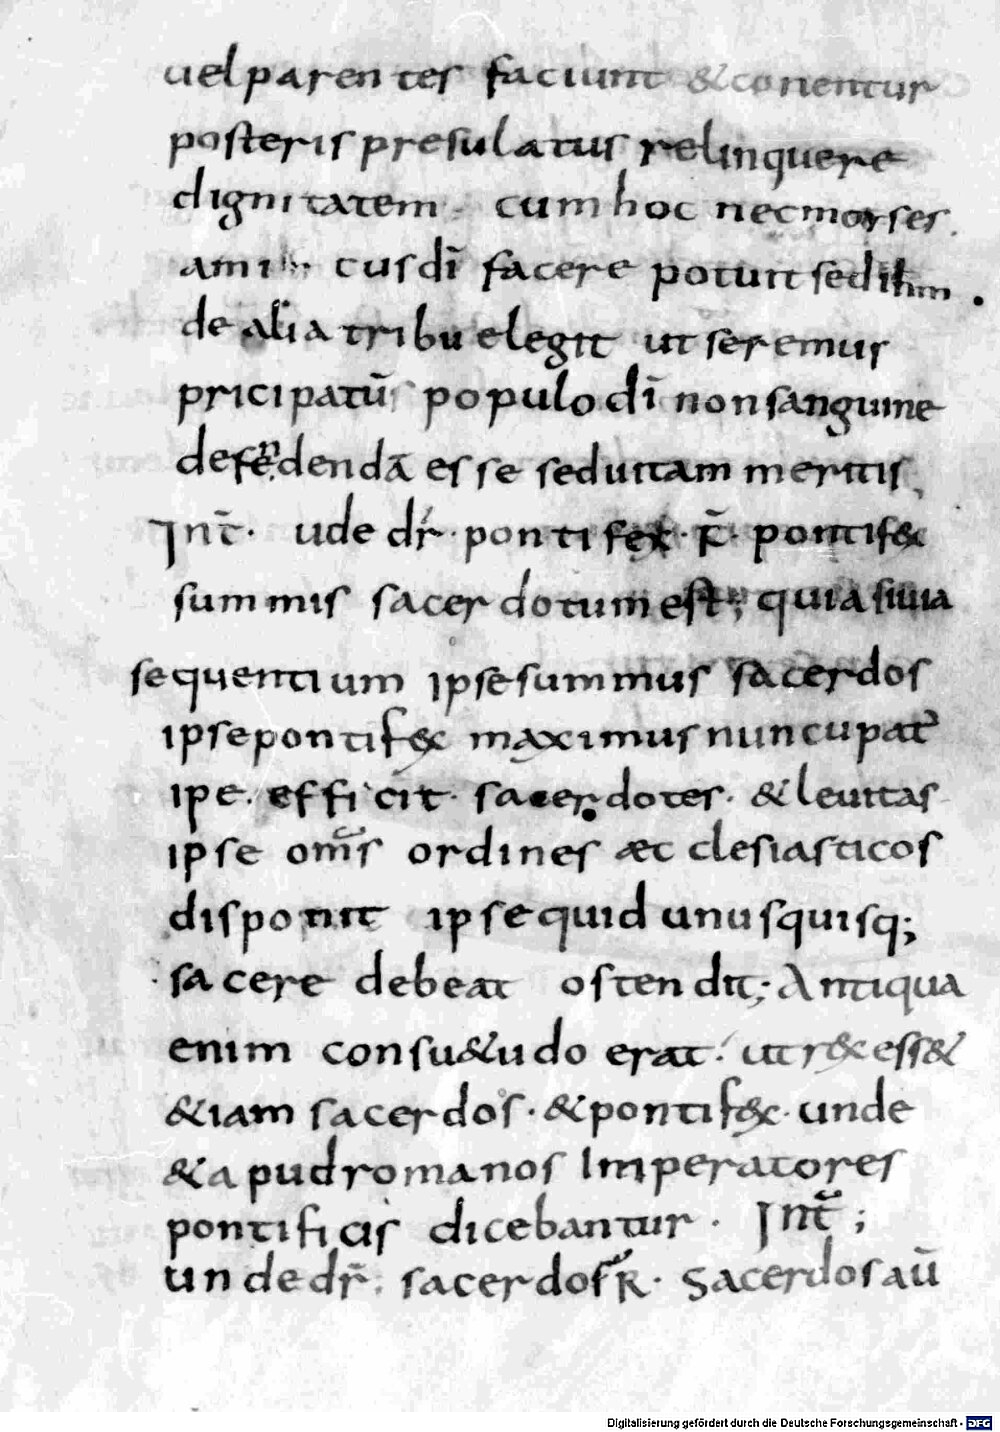 uel parentes faciunt & conentur
posteris presulatus relinquere
dignitatem cum hoc nec moyses
amicus dī facere potuit sed
de alia tribu elegit ut seremus
pricipatū populo dī non sanguine
defendendā esse sed uitam meritis
Int̄· ude dr̄· pontifex· R̄· pontif&
summis sacerdotum est; quia si uia
sequentium ipse summus sacerdos
ipse pontifex maximus nuncupat̄
ipe· efficit· sacerdotes· & leuitas
ipse om̄s ordines æcclesiasticos
disponit ipse quid unusquisq;
facere debeat ostendit; Antiqua
enim consu&udo erat· ut rex ess&
&iam sacerdos· & pontifex· unde
& apud romanos Imperatores
pontificis dicebantur· Int̄;
unde dr̄· sacerdos R̄· Sacerdos aū
Digitalisierung gefördert durch die Deutsche Forschungsgemeinschaft - DFG